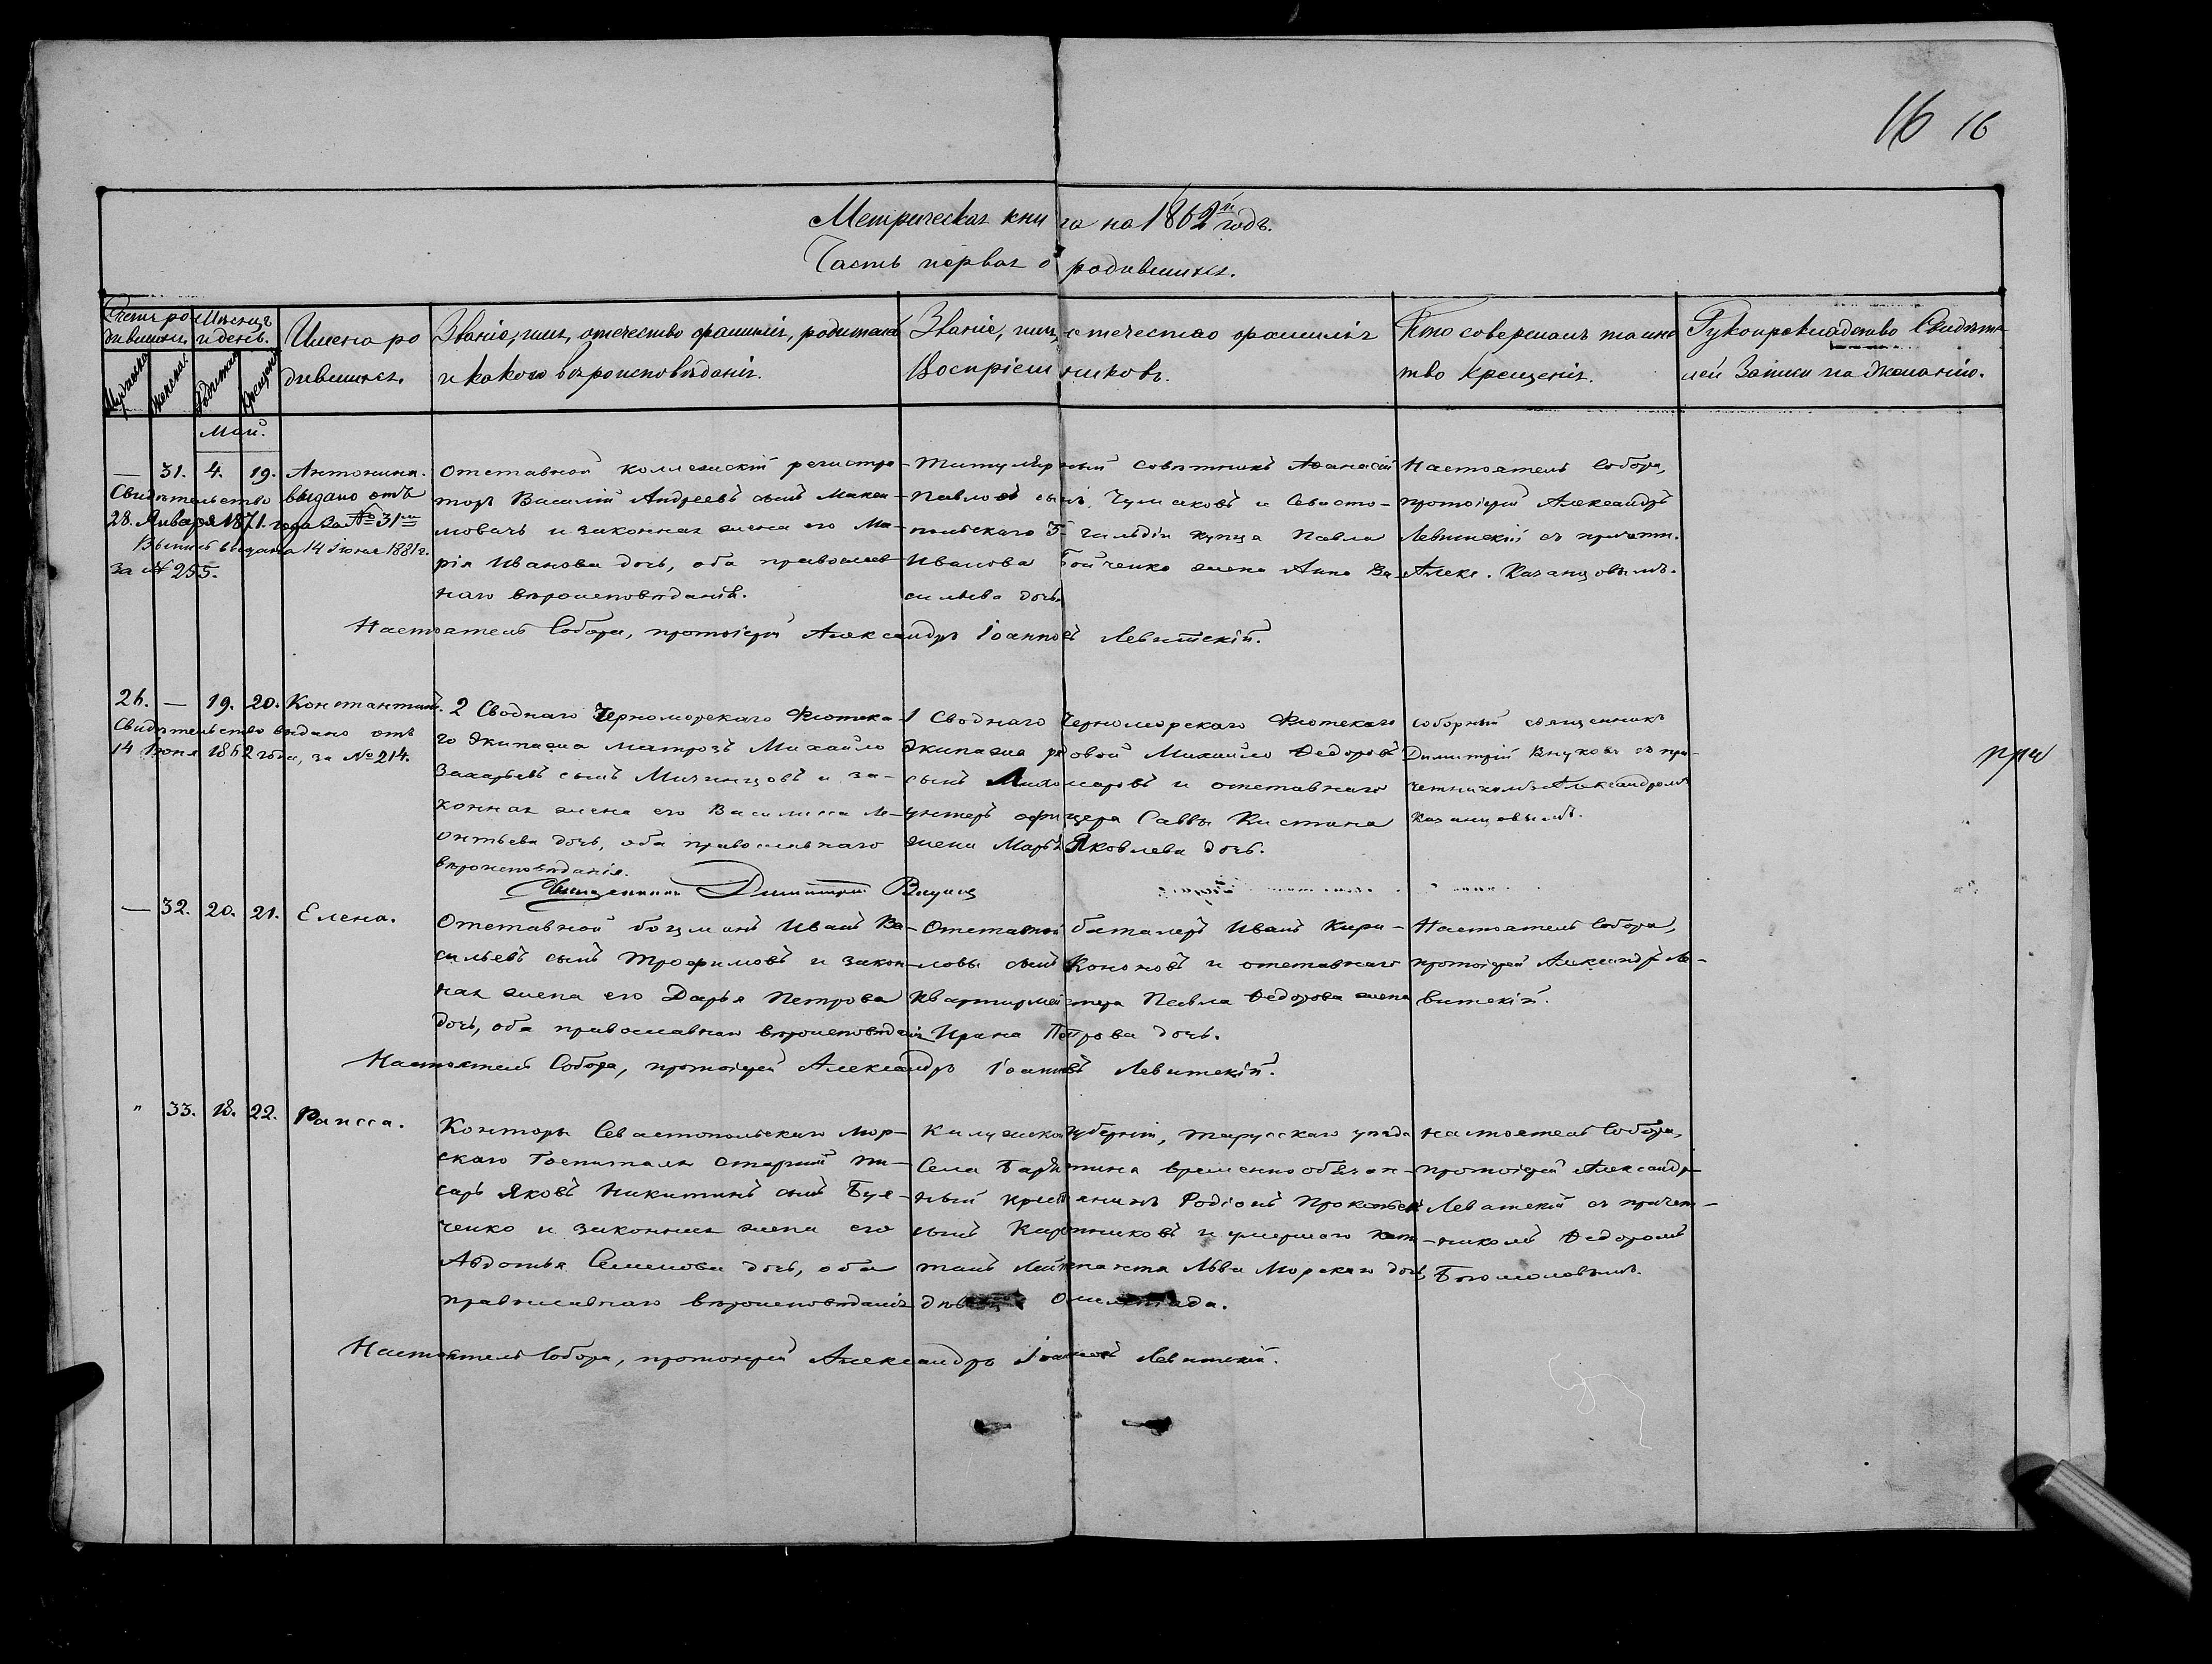 16 16
Метрическая книга на 1862й годъ.
Часть первая о родившихся.
Счетъ родившихся.
Мужеска
Женска
Мѣсяцъ и день.
Рожденія
Крещенія
Имена родившихся.
Званіе, имя, отечество фамилія, родителей
и какого вѣроисповѣданія.
Званіе, имя, отечество фамилія
Воспріемниковъ.
Кто совершалъ таинство крещенія.
Рукоприкладство Свидѣтелей записи по желанію.
Май.
— 31. 4. 19. Антонина.
Свидѣтельство выдано отъ
28. Января 1871. года за № 31м
Выпись выдана 14 Іюня 1881 г.
за № 255.
Отставной коллежскій регистра-
торъ Василій Андреевъ сынъ Макси-
мовичъ и законная жена его Ма-
рія Иванова дочь, оба православ-
наго вѣроисповѣданія.
Титулярный совѣтникъ Аѳанасій
Павловъ сынъ Чумаковъ и Севасто-
польскаго 3 гильдіи купца Павла
Иванова Бойченко жена Анна Ва-
сильева дочь.
Настоятель Собора,
протоіерей Александръ
Левитскій съ причетн.
Алекс. Казанцовымъ.
Настоятель Собора, протоіерей Александръ Іоанновъ Левитскій.
26. — 19. 20. Константинъ.
Свидѣтельство выдано отъ
14 Іюня 1862 года, за № 214.
2 Своднаго Черноморскаго Флотска-
го Экипажа матрозъ Михайло
Захарьевъ сынъ Мизинцовъ и за-
конная жена его Василиса Ле-
онтьева дочь, оба православнаго
вѣроисповѣданія.
1 Своднаго Черноморскаго Флотскаго
Экипажа рядовой Михайло Ѳедоровъ
сынъ и отставнаго
унтеръ офицера Саввы Кистина
жена Марья Яковлева дочь.
соборный священникъ
Димитрій Внуковъ съ при-
четникомъ Александромъ
Казанцовымъ.
Священникъ Димитрій Внуковъ
— 32. 20. 21. Елена.
Отставной боцманъ Иванъ Ва-
сильевъ сынъ Трофимовъ и закон-
ная жена его Дарья Петрова
дочь, оба православнаго вѣроисповѣданія
Отставной баталеръ Иванъ Кири-
ловъ сынъ Кононовъ и отставнаго
квартирмейстера Павла Ѳедорова жена
Ирина Петрова дочь.
Настоятель Собора,
протоіерей Александръ Ле-
витскій.
Настоятель Собора, протоіерей Александръ Іоанновъ Левитскій.
" 33. 18. 22. Раисса.
Конторы Севастопольскаго Мор-
скаго Госпиталя Старшій пи-
сарь Яковъ Никитинъ сынъ Буя-
ченко и законная жена его
Авдотья Семенова дочь, оба
православнаго вѣроисповѣданія
Калужской губерніи, Тарусскаго уѣзда
Села Барятина временно обязан-
ный крестьянинъ Родіонъ Прокофьевъ
сынъ и умершаго капи-
танъ Лейтнанта Льва Морскаго дочь
Настоятель Собора,
протоіерей Александръ
Левитскій съ причет-
никомъ Ѳедоромъ
Богомоловымъ.
Настоятель Собора, протоіерей Александръ Іоанновъ Левитскій.